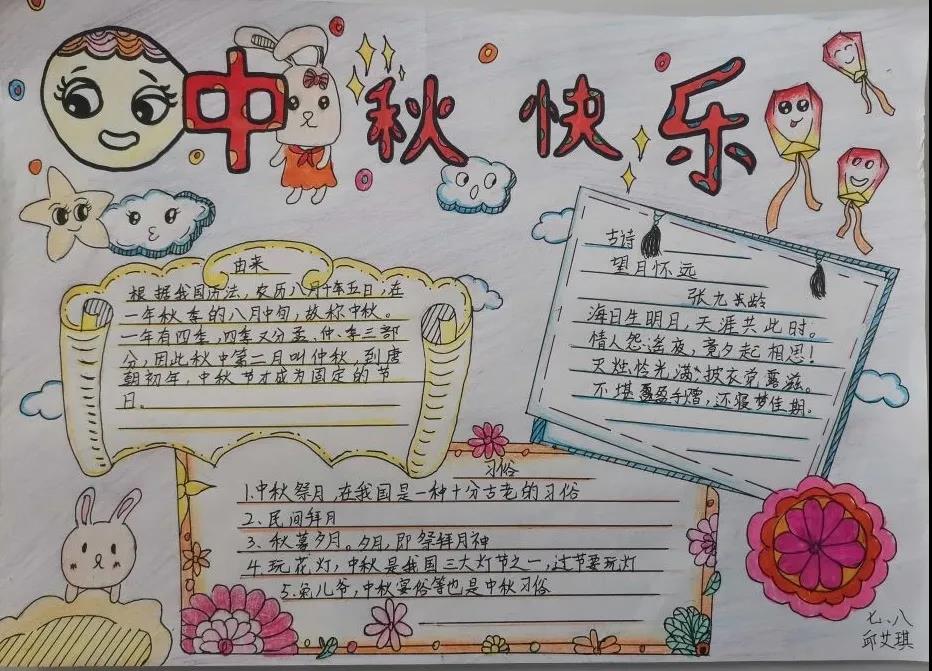 中秋快乐
由来
根据我国历法，农历八月十五日，在
一年秋季的八月中旬，故称中秋。
一年有四季，四季又分孟、仲、季三部
分，因此秋中第二月叫仲秋，到唐
朝初年，中秋节才成为固定的节
日。
古诗
望月怀远
张九龄
海日生明月，天涯共此时。
情人怨遥夜，竟夕起相思！
灭烛怜光满，披衣觉露滋。
不堪盈手赠，还寝梦佳期。
习俗
1.中秋祭月，在我国是一种十分古老的习俗
2、民间拜月
3、秋暮夕月。夕月，即祭拜月神
4.玩花灯，中秋是我国三大灯节之一，过节要玩灯
5.兔儿爷，中秋宴俗等也是中秋习俗
七、八
邱艾琪